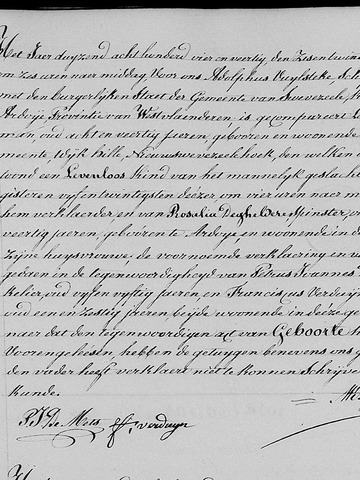 Het Jaer duyzend acht honderd vier en veertig, den
om zes uren naer middag. Voor ons Adolphus Vuylsteke,
met den burgerlyken Staet der Gemeente van Swevezeele,
Ardoye, Provintie van Westvlaenderen; is gecompareert
man, oud acht en veertig jaeren, geboren en woonende
meente, Wyk hille, Nieuwswevezeelhoek, den welken
toond een Levenloos kind van het mannelyk geslacht
gisteren vyf en twintigsten deézer, om vier uren naer m
hem verklaerder, en van Rosalia Degheldere Spinster,
veertig jaeren, geboren te Ardoye en woonende in d
zyne huysvrouwe, de voornoemde verklaering en
gedaen in de tegenwoordigheyd van Petrus Joannes
oud vyf en vyftig jaeren, en Franciscus Verduyn
oud een en zestig jaeren, beyde woonende in deéze ge
naer dat den tegenwoordigen act van Geboorte h
Voorengeleésen, hebben de getuygen benevens ons g
den vader heeft verklaert niet te konnen Schryve
kunde.
P. J. De Mets fs. verduyn